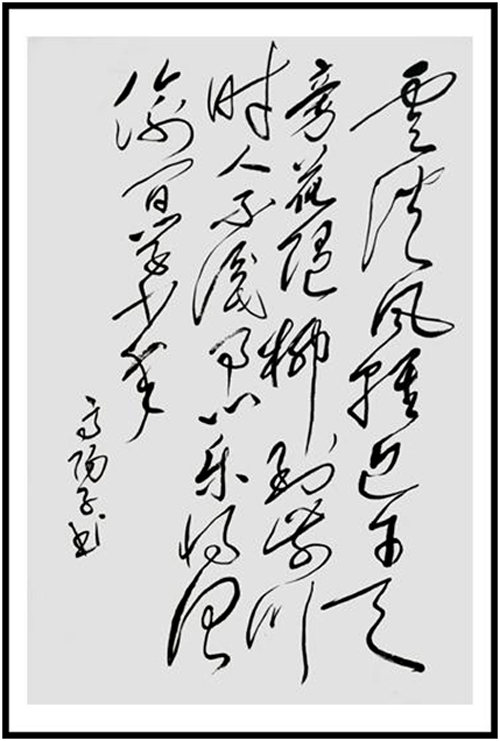 雲淡风轻近午天
旁花随柳过前川
时人不识予心乐将谓
偷闲学少年
高阳子书